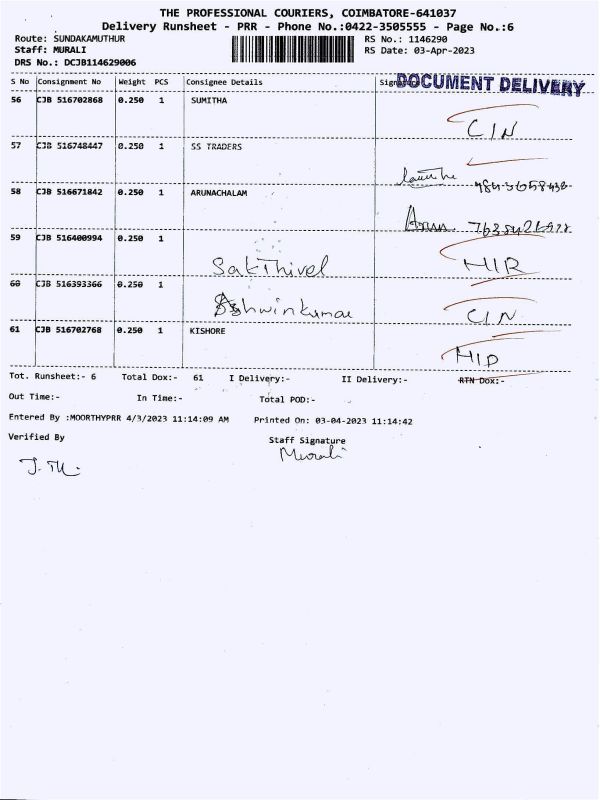 THE PROFESSIONAL COURIERS, COIMBATORE-641037
Delivery Runsheet - PRR - Phone No.:0422-3505555 - Page No.:6
Route: SUNDAKAMUTHUR RS No.: 1146290
Staff: MURALI RS Date: 03-Apr-2023
DRS No.: DCJB114629006
S No Consignment No Weight PCS Consignee Details DOCUMENT DELIVERY
56 CJB 516702868 0.250 1 SUMITHA CIN
57 CJB 516748447 0.250 1 SS TRADERS
58 CJB 516671842 0.250 1 ARUNACHALAM Arun
59 CJB 516400994 0.250 1 Sakthivel
60 CJB 516393366 0.250 1 Ashwinkumar CIN
61 CJB 516702768 0.250 1 KISHORE
Tot. Runsheet:- 6 Total Dox:- 61 I Delivery:- II Delivery:- RTN Dox:-
Out Time:- In Time:- Total POD:-
Entered By :MOORTHYPRR 4/3/2023 11:14:09 AM Printed On: 03-04-2023 11:14:42
Verified By Staff Signature
Murali